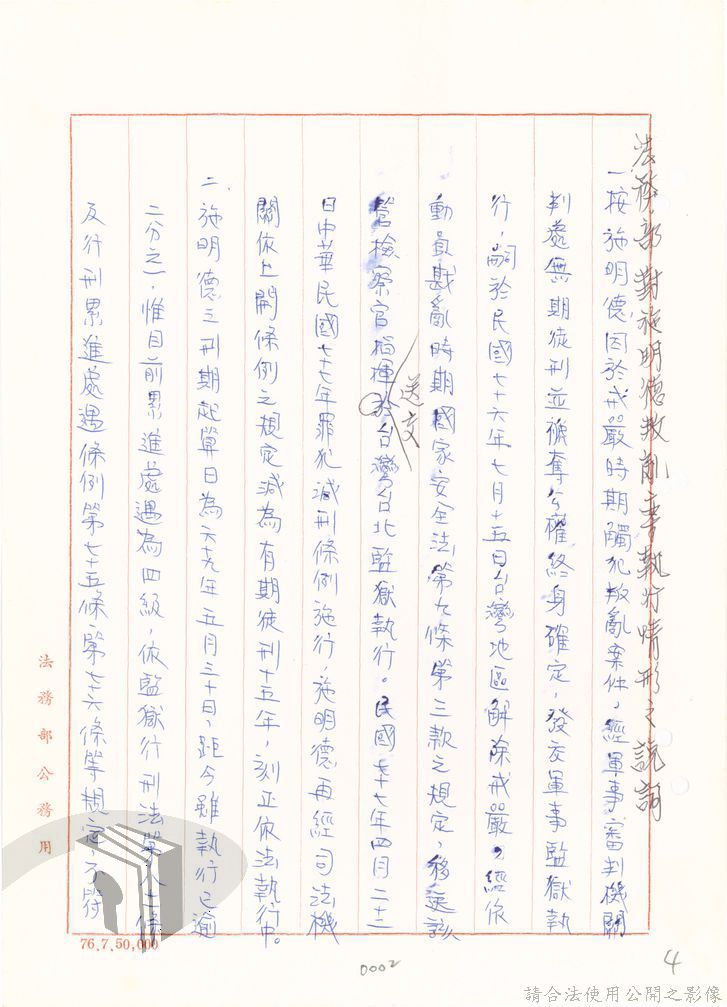 法務部對施明德叛亂案執行情形之說詞
一按施明德因於戒嚴時期觸犯叛亂案件，經軍事審判機關
判處無期徒刑並褫奪公權終身確定，發交軍事監獄執
行，嗣於民國七十六年七月十五日台灣地區解除戒嚴，經依
動員戡亂時期國家安全法第九條第三款之規定，移送該
管檢察官指揮送交台灣台北監獄執行。民國七十七年四月二十二
日中華民國七十七年罪犯減刑條例施行，施明德再經司法機
關依上開條例之規定減為有期徒刑十五年，刻正依法執行中。
二、施明德之刑期起算日為六十九年五月三十日，距今雖執行已逾
二分之一，惟目前累進處遇為四級，依監獄行刑法第八十一條
及行刑累進處遇條例第七十五條、第七十六條等規定，不符
法務部公務用
76.7.50,000
0002
4
請合法使用公開之影像